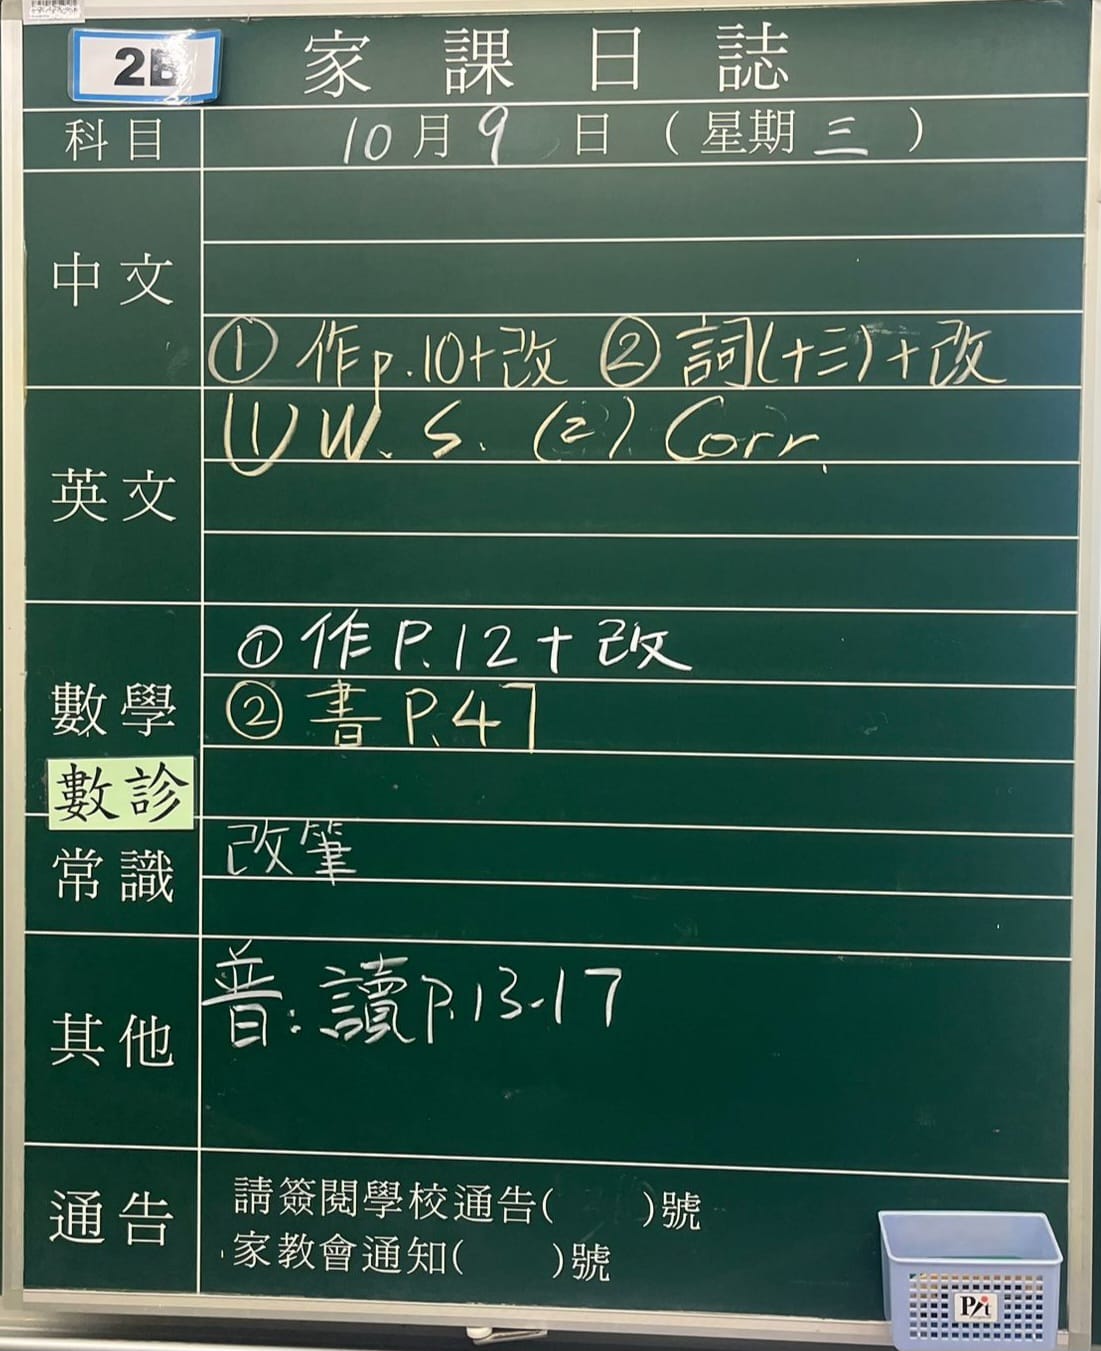 2B 家課日誌
科目 10月9日（星期三）
中文
① 作p.10+改 ② 詞(十三)+改
英文
(1) W.S. (2) Corr.
數學
① 作P.12+改
② 書P.47
數診
常識
改筆
其他
普:讀P.13-17
通告
請簽閱學校通告( )號
家教會通知( )號
Pit